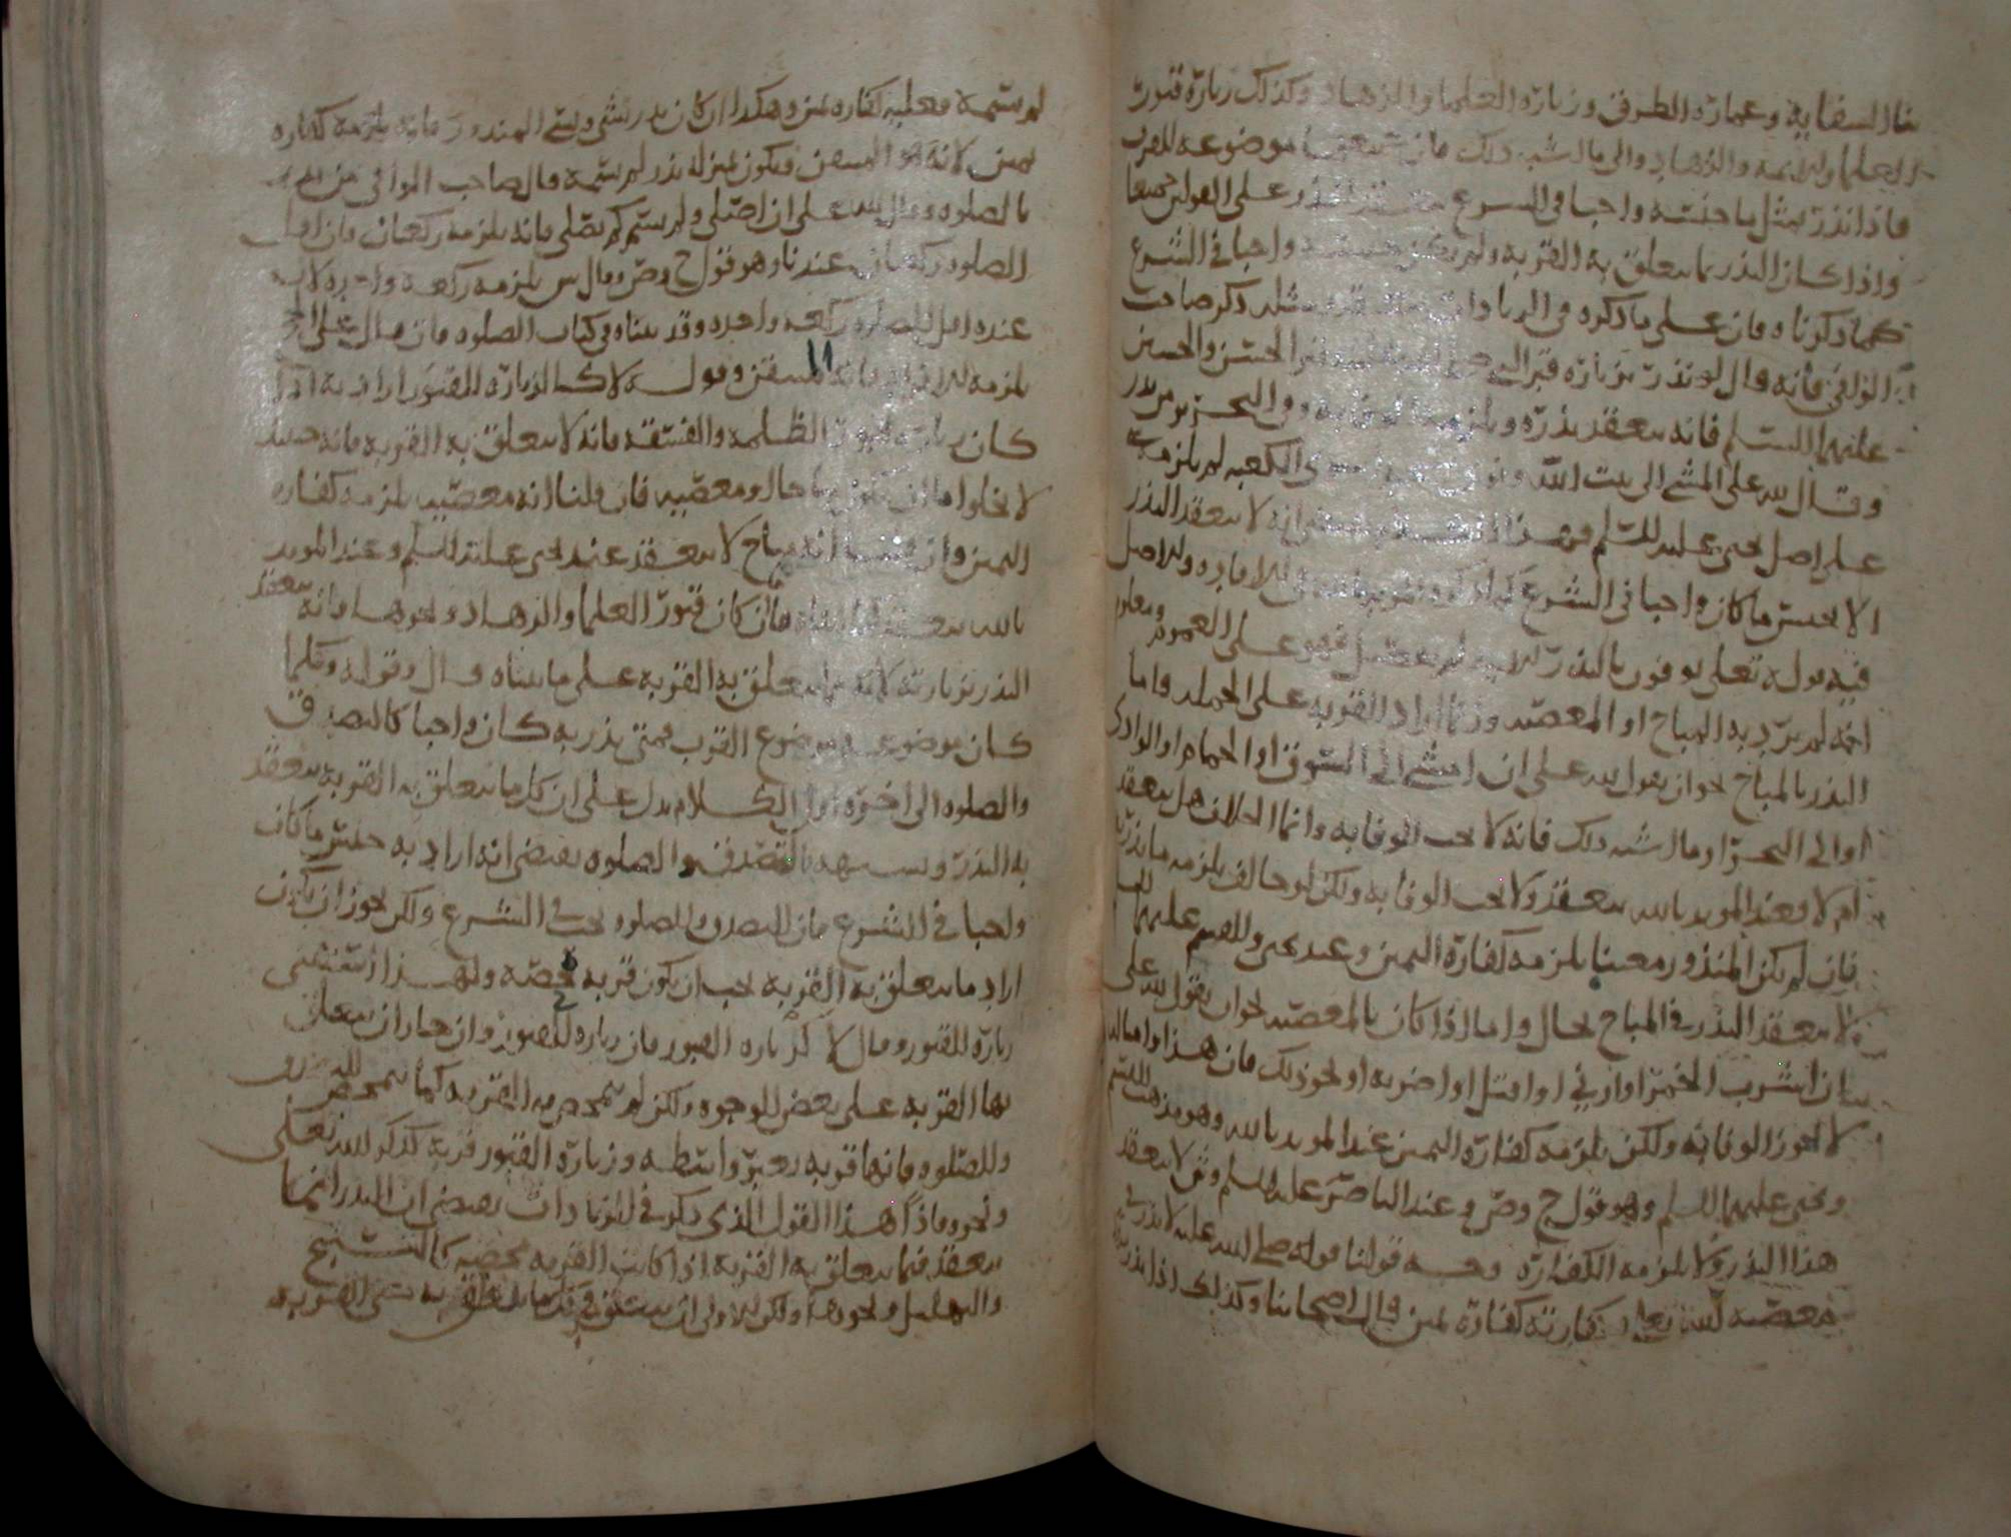 بنا السقايه وعمارة الطرق وزيارة العلما والزهاد وكذلك زيارة قبور
العلما والايمه والزهاد والى ما اشبه ذلك فان موضوعه للقرب
فاذا نذر بمثل ما جنسه واجبا في الشرع النذر على القولين جميعا
واذا كان النذر بما يتعلق به القربه ولم يكن جنسه واجبا في الشرع
كما ذكرناه فان على ما ذكره في الزيادات ذكر صاحب
الوافي فانه قال لو نذر بزيارة قبر النبي صلى الله عليه او قبر الحسن والحسين
عليهما السلم فانه ينعقد نذره ويلزمه الوفا به وفي التحرير من نذر
وقال لله علي المشي الى بيت الله سوى الكعبه لم يلزمه شي
على اصل يحيى عليه السلم فهذا يقتضي انه لا ينعقد النذر
الا بجنس ما كان واجبا في الشرع كما ذكره في الافاده والاصل
فيه قوله تعالى يوفون بالنذر لم يفصل فهو على العموم ومعلوم
انه لم يرد به المباح او المعصيه وانما اراد القربه على الجمله واما
النذر بالمباح نحو ان يقول لله علي ان امشي الى السوق او الحمام او الوادي
او الى البحر او ما اشبه ذلك فانه لا يجب الوفا به وانما الخلاف هل ينعقد
ام لا فعند المويد بالله ينعقد ولا يجب الوفا به ولكن لو خالف يلزمه ما نذر به
فان لم يكن المنذور معينا يلزمه كفارة اليمين وعند يحيى والقسم عليهما السلم
لا ينعقد النذر في المباح بحال واما اذا كان بالمعصيه نحو ان يقول لله علي
بان اشرب الخمر او ازني او اقتل او اضربه او نحو ذلك فان هذا وامثاله
لا يجوز الوفا به ولكن يلزمه كفارة اليمين عند المويد بالله وهو مذهب القسم
ويحيى عليهما السلم وهو قول ح وص وعند الناصر عليه السلم وش لا ينعقد
هذا النذر ولا يلزمه الكفارة وجه قولنا قوله صلى الله عليه لا نذر في
معصية الله تعالى وكفارته كفارة يمين قال اصحابنا وكذلك اذا نذر نذرا
لم يسمه فعليه كفارة يمين وهكذا ان كان نذر بشي ونسي المنذور فانه يلزمه كفارة
يمين لانه هو المتيقن ويكون بمنزلة نذر لم يسمه قال صاحب الوافي من نذر
بالصلوه وقال لله علي ان اصلي ولم يسم كم يصلي فانه يلزمه ركعتان فان اقل
الصلوه ركعتان عندنا وهو قول ح وص وقال ش يلزمه ركعه واحده لان
عنده اقل الصلوه ركعه واحده وقد بيناه في كتاب الصلوه فان قال علي الحج
يلزمه فانه المتيقن وقوله لا كالزيارة للقبور اراد به اذا
كان زيارة قبور الظلمه والفسقه فانه لا يتعلق به القربه فانه حينئذ
لا يخلوا اما ان يكون مباحا او معصيه فان قلنا انه معصيه يلزمه كفارة
اليمين وان قلنا انه مباح لا ينعقد عند يحيى عليه السلم وعند المويد
بالله ينعقد فان كان قبور العلما والزهاد ونحوها فانه ينعقد
النذر بزيارته لانه مما يتعلق به القربه على ما بيناه قال وقوله وكلما
كان موضوعه موضوع القرب فمتى نذر به كان واجبا كالتصدق
والصلوه الى اخره اول الكلام يدل على ان كل ما يتعلق به القربه ينعقد
به النذر وتشبيهه بالتصدق والصلوه يقتضي انه اراد به جنس ما كان
واجبا في الشرع فان التصدق والصلوه يجب في الشرع ولكن يجوز ان يكون
اراد ما يتعلق به القربه يجب ان يكون قربه محضه ولهذا استثنى
زيارة القبور وقال لا كزيارة القبور فان زيارة القبور وان جاز ان يتعلق
بها القربه على بعض الوجوه ولكن لم تتمحض فيه القربه كما تتمحض في التصدق
والصلوه فانها قربه بغير واسطه وزيارة القبور قربة كذكر الله تعالى
ونحوه فاذا هذا القول الذي ذكر في الزيادات يقتضي ان النذر انما
ينعقد فيما يتعلق به القربه اذا كانت القربه محضه كالتسبيح
والتهليل ونحوهما ولكن الاولى ان